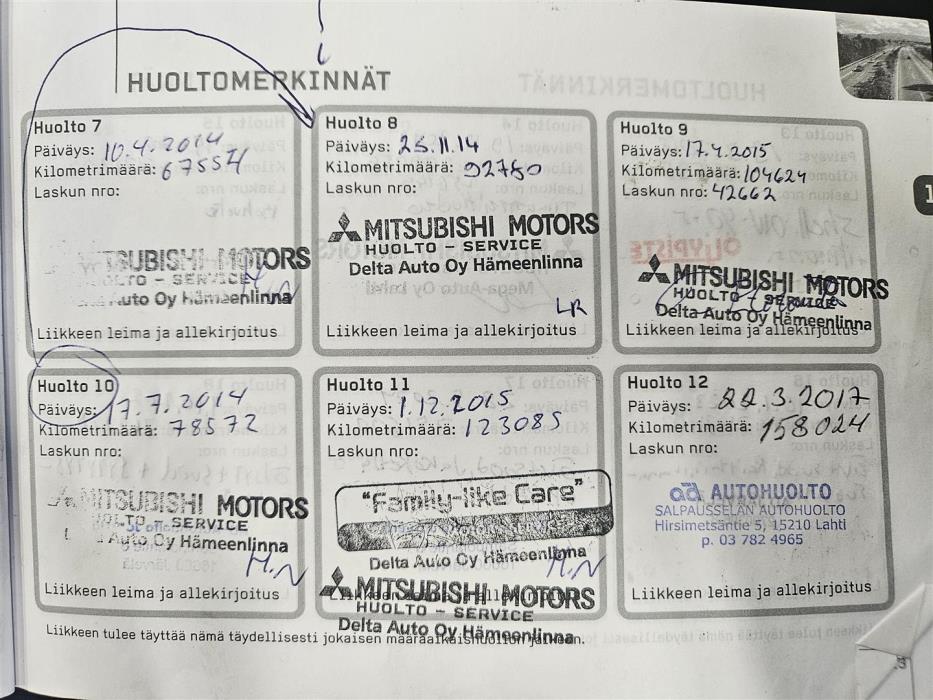 HUOLTOMERKINNÄT
Huolto 7
Päiväys: 10.4.2014
Kilometrimäärä: 67554
Laskun nro:
SUBISHI MOTORS
TO - SERVICE
Auto Oy Hämeenlinna
Liikkeen leima ja allekirjoitus
Huolto 8
Päiväys: 25.11.14
Kilometrimäärä: 92780
Laskun nro:
MITSUBISHI MOTORS
HUOLTO - SERVICE
Delta Auto Oy Hämeenlinna
LR
Liikkeen leima ja allekirjoitus
Huolto 9
Päiväys: 17.4.2015
Kilometrimäärä: 104624
Laskun nro: 42662
MITSUBISHI MOTORS
HUOLTO - SERVICE
Delta Auto Oy Hämeenlinna
Liikkeen leima ja allekirjoitus
Huolto 10
Päiväys: 17.7.2014
Kilometrimäärä: 78572
Laskun nro:
MITSUBISHI MOTORS
LTO - SERVICE
Auto Oy Hämeenlinna
H.N
Liikkeen leima ja allekirjoitus
Huolto 11
Päiväys: 1.12.2015
Kilometrimäärä: 123085
Laskun nro:
"Family-like Care"
Delta Auto Oy Hämeenlinna
H.N
MITSUBISHI MOTORS
HUOLTO - SERVICE
Delta Auto Oy Hämeenlinna
Huolto 12
Päiväys: 22.3.2017
Kilometrimäärä: 158024
Laskun nro:
ad AUTOHUOLTO
SALPAUSSELÄN AUTOHUOLTO
Hirsimetsäntie 5, 15210 Lahti
p. 03 782 4965
Liikkeen leima ja allekirjoitus
Liikkeen tulee täyttää nämä täydellisesti jokaisen määräaikaishuollon jälkeen.